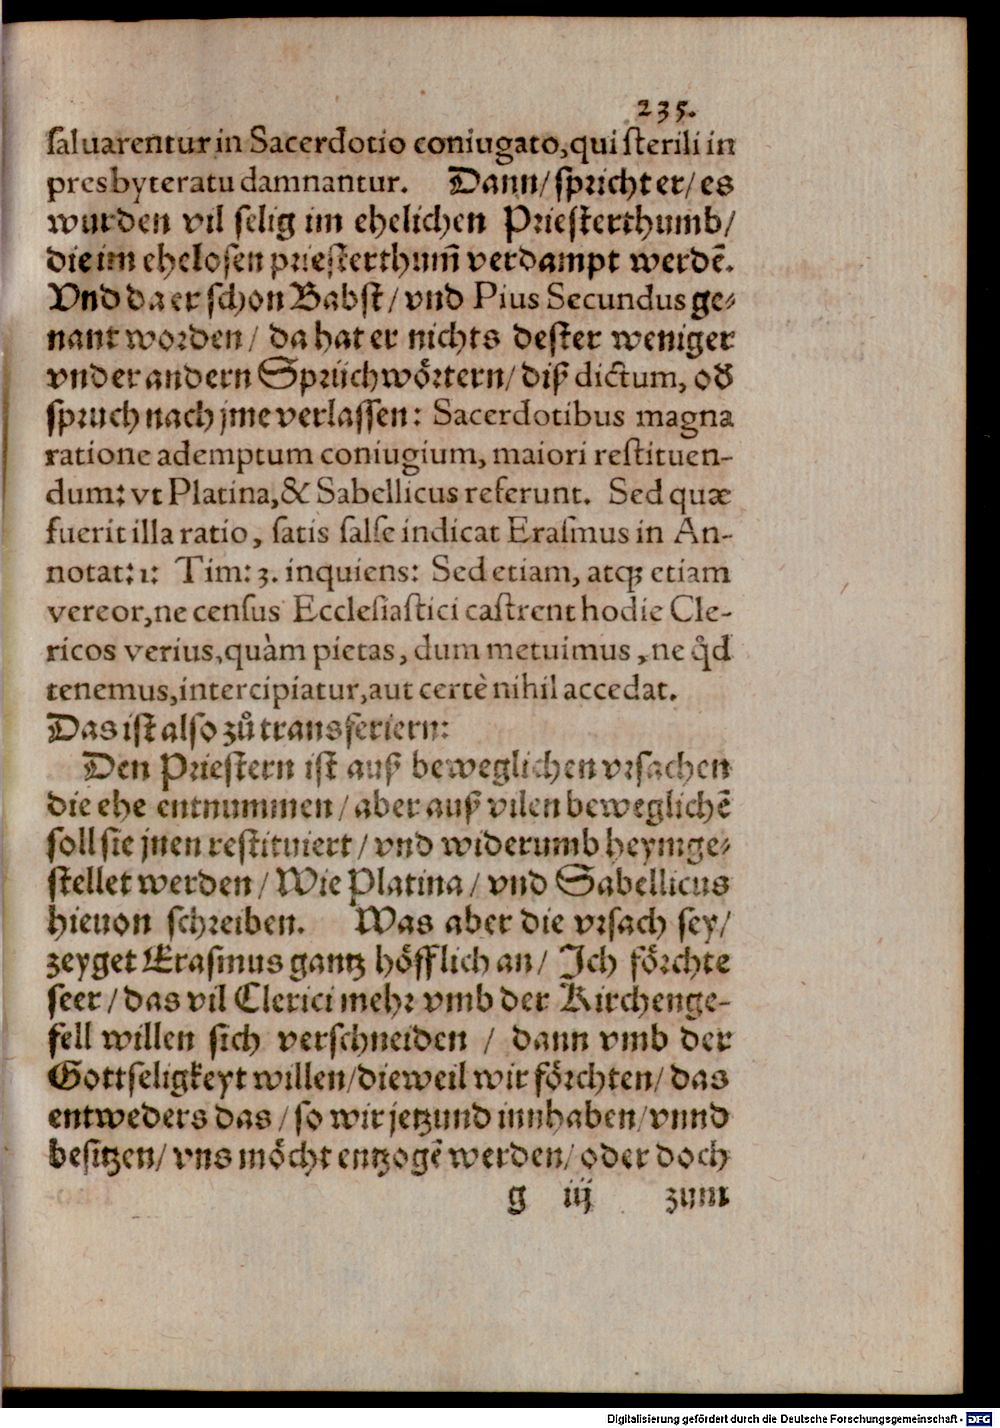 235.
saluarentur in Sacerdotio coniugato, qui sterili in
presbyteratu damnantur. Dann/ spricht er/ es
wurden vil selig im ehelichen Priesterthumb/
die im ehelosen priesterthum̃ verdampt werdẽ.
Vnd da er schon Babst/ vnd Pius Secundus ge⸗
nant worden/ da hat er nichts dester weniger
vnder andern Sprüchwörtern/ diß dictum, oď
spruch nach jme verlassen: Sacerdotibus magna
ratione ademptum coniugium, maiori restituen-
dum: vt Platina, & Sabellicus referunt. Sed quæ
fuerit illa ratio, satis salse indicat Erasmus in An-
notat: 1: Tim: 3. inquiens: Sed etiam, atq; etiam
vereor, ne census Ecclesiastici castrent hodie Cle-
ricos verius, quàm pietas, dum metuimus, ne q̊d
tenemus, intercipiatur, aut certè nihil accedat.
Das ist also zů transferiern:
Den Priestern ist auß beweglichen vrsachen
die ehe entnummen/ aber auß vilen beweglichẽ
soll sie jnen restituiert/ vnd widerumb heymge⸗
stellet werden/ Wie Platina/ vnd Sabellicus
hieuon schreiben. Was aber die vrsach sey/
zeyget Erasmus gantz höfflich an/ Ich förchte
seer/ das vil Clerici mehr vmb der Kirchenge-
fell willen sich verschneiden / dann vmb der
Gottseligkeyt willen/ dieweil wir förchten/ das
entweders das/ so wir jetzund innhaben/ vnnd
besitzen/ vns möcht entzogẽ werden/ oder doch
g iij zum
Digitalisierung gefördert durch die Deutsche Forschungsgemeinschaft - DFG